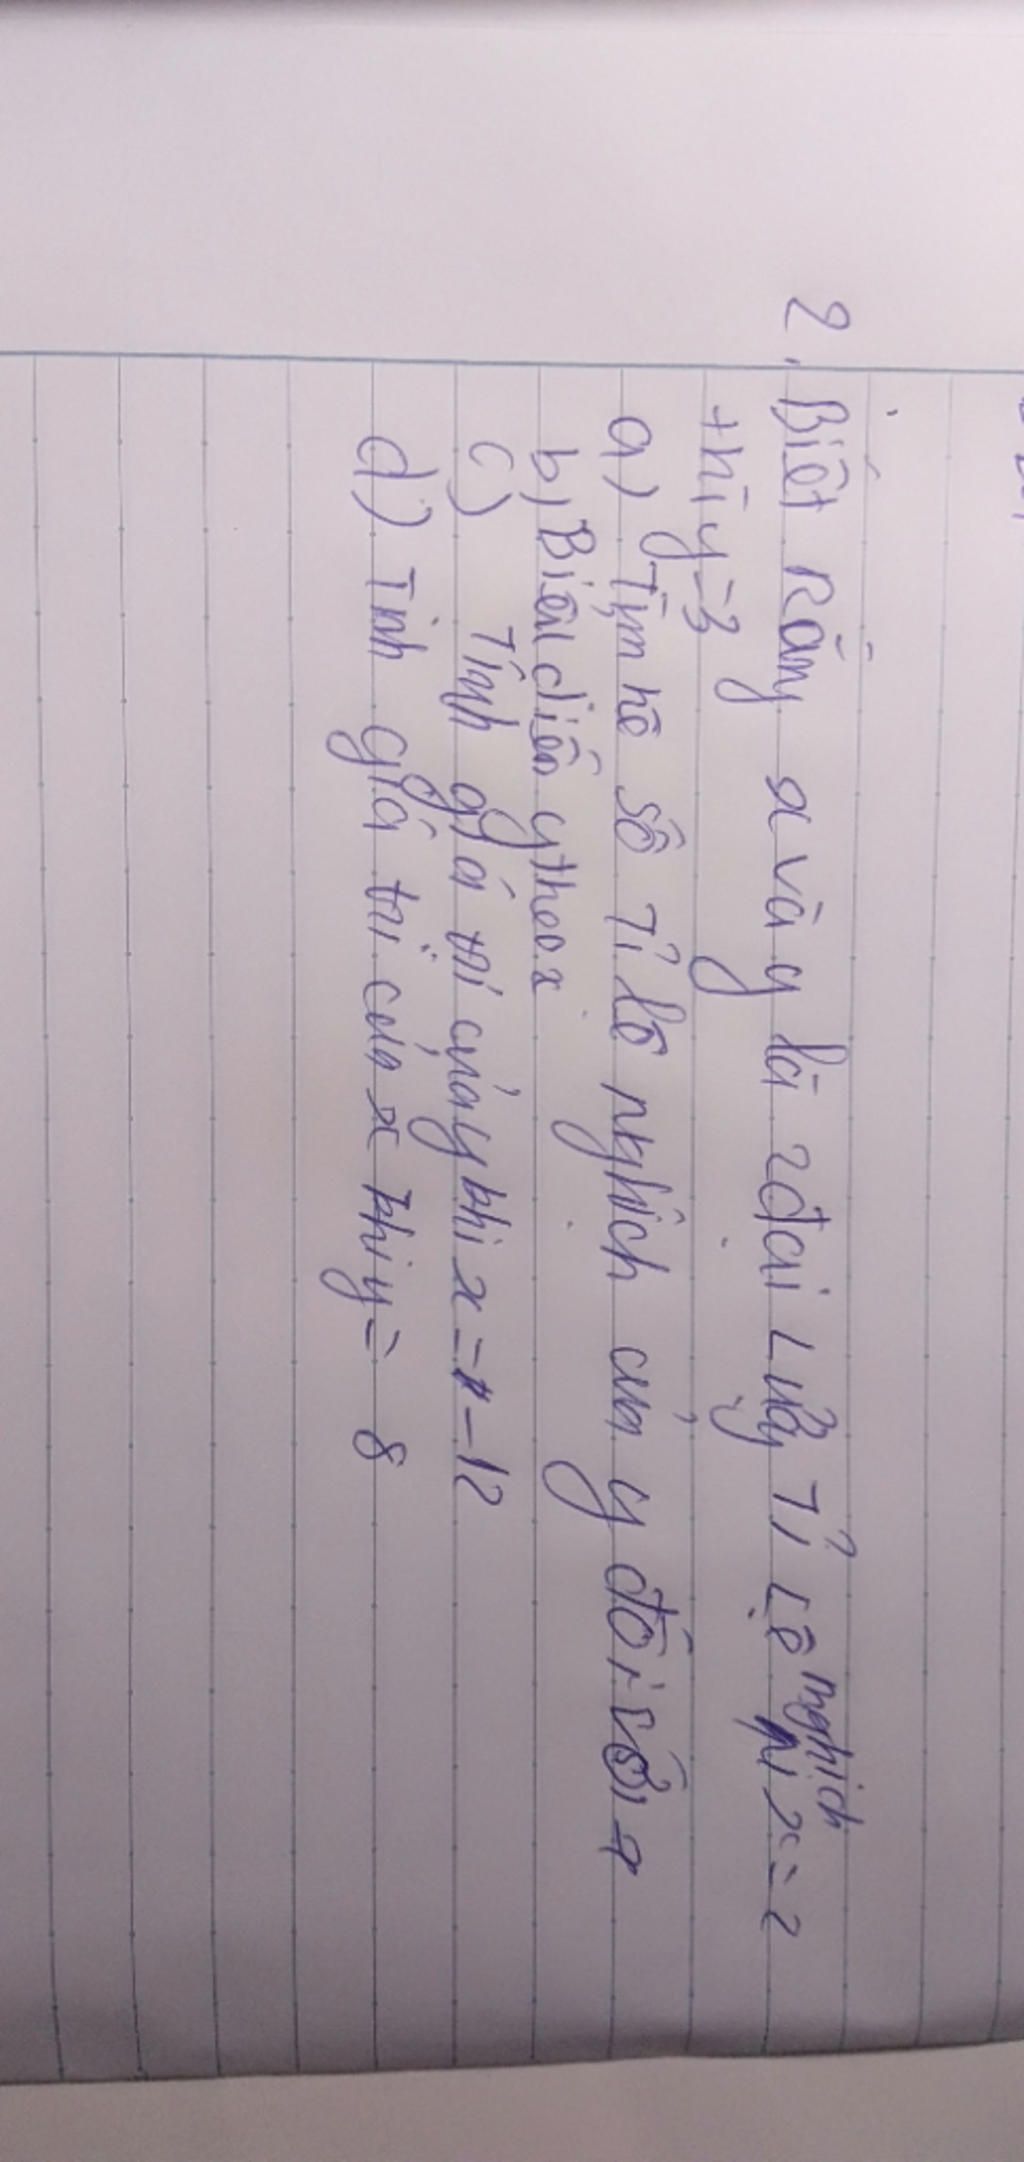 2. Biết Rằng x và y là 2 đại Lượng Tỉ Lệ nghịch khi x = 2
thì y = 3
a) Tìm hệ số Tỉ lệ nghịch của y đối với x
b) Biểu diễn y theo x
c) Tính giá trị của y khi x = -12
d) Tính giá trị của x khi y = 8